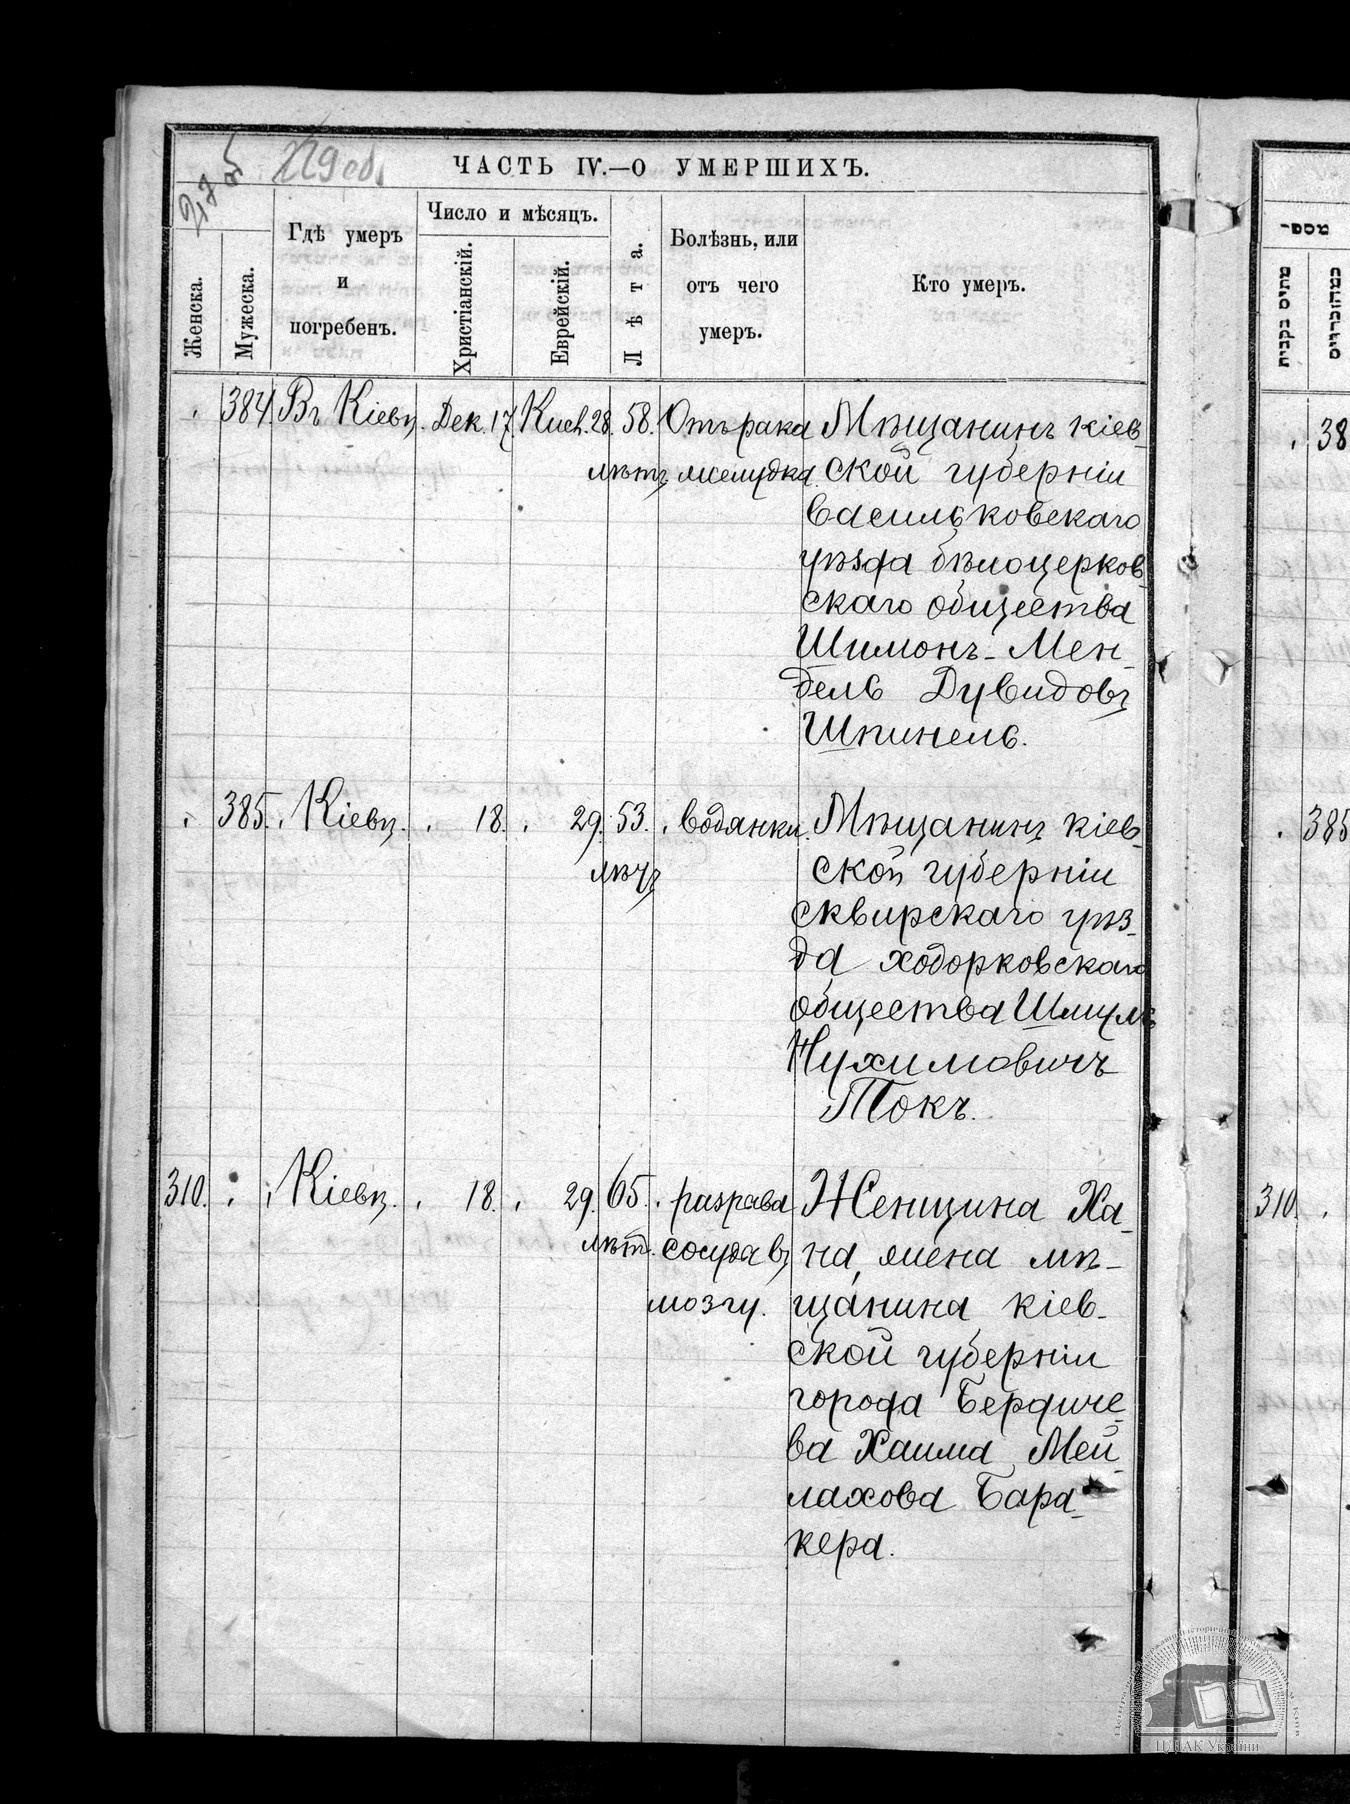 229 об.
ЧАСТЬ IV.—О УМЕРШИХЪ.
Женска.
Мужеска.
Гдѣ умеръ
и
погребенъ.
Число и мѣсяцъ.
Христіанскій.
Еврейскій.
Лѣта.
Болѣзнь, или
отъ чего
умеръ.
Кто умеръ.
384. Въ Кіевѣ. Дек. 17. Кисл. 28. 58. Отъ рака Мѣщанинъ кіев-
лѣтъ желудка. ской губерніи
васильковскаго
уѣзда бѣлоцерков-
скаго общества
Шимонъ-Мен-
дель Дувидовъ
Шпинель.
385. Кіевѣ. 18. 29. 53. водянки. Мѣщанинъ кіев-
лѣтъ ской губерніи
сквирскаго уѣз-
да ходорковскаго
общества Шмуль
Нухимовичъ
Токъ.
310. Кіевѣ. 18. 29. 65. разрыва Женщина Ха-
лѣт. сосуда въ на, жена мѣ-
мозгу. щанина кіев-
ской губерніи
города Бердиче-
ва Хаима Мей-
лахова Бара-
кера.
מספ־
מתים נקבות
38
385
310.
ЦДІАК України